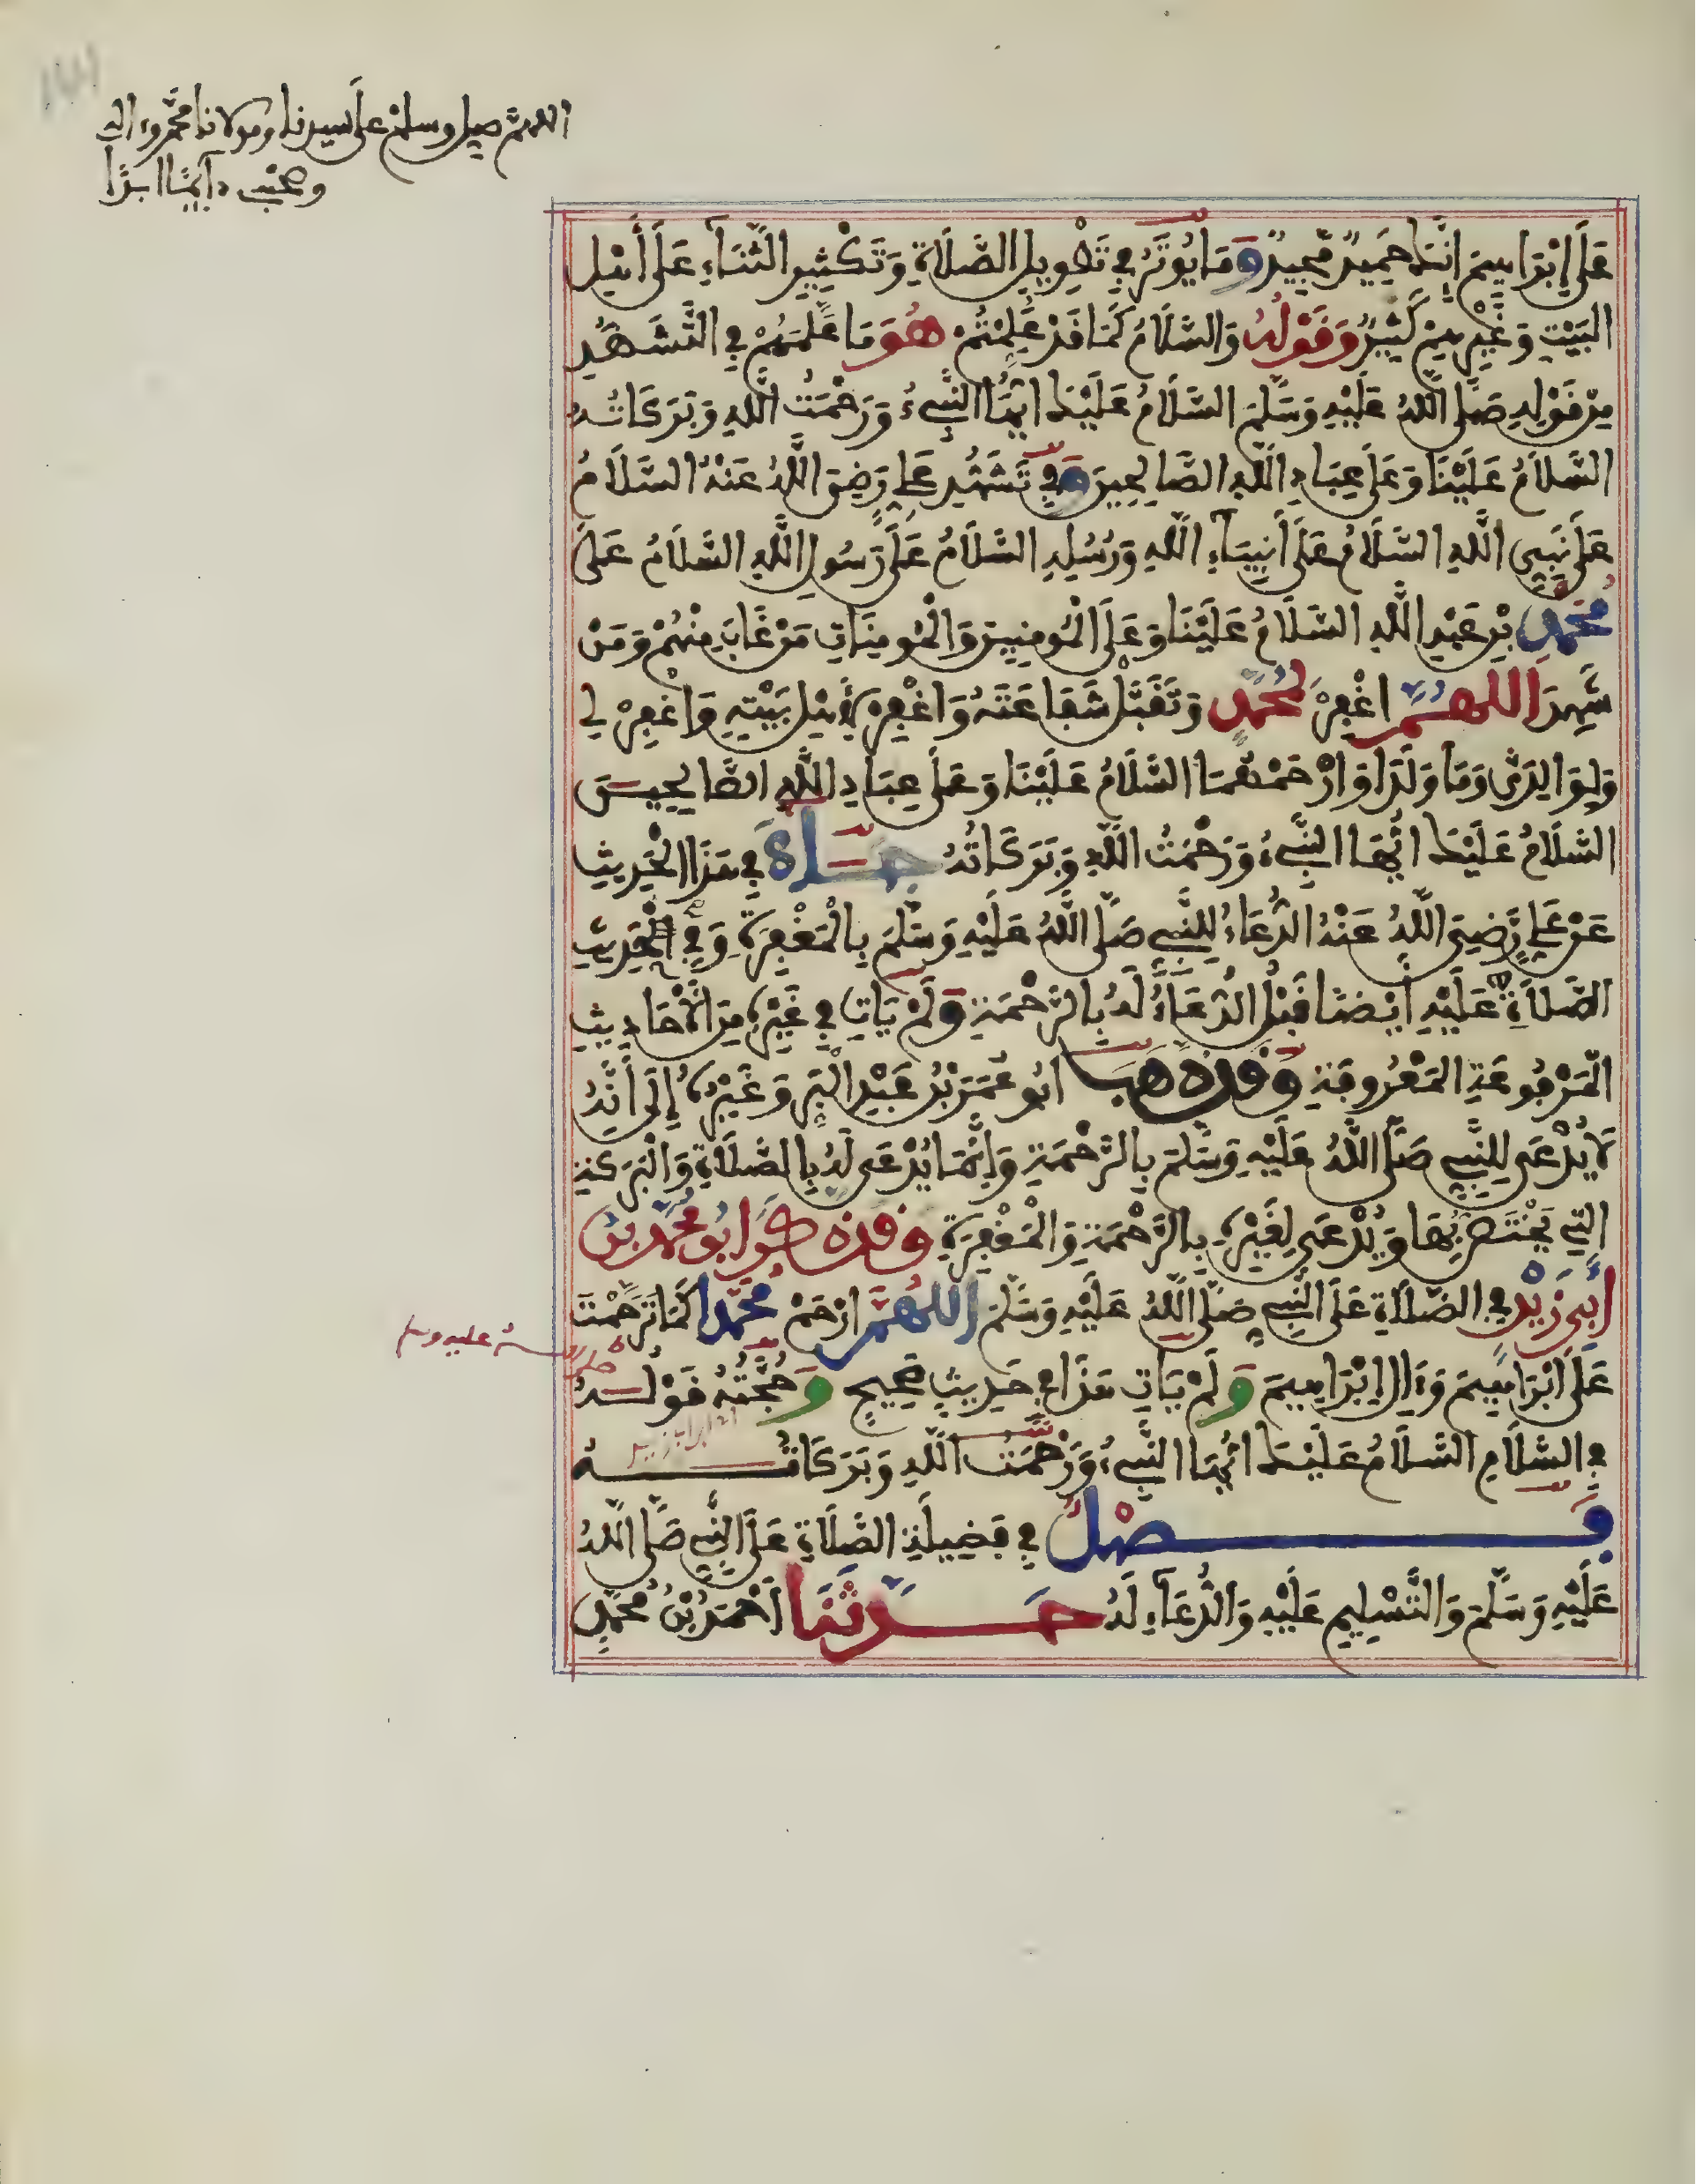 اللهم صل وسلم على سيدنا ومولانا محمد وءاله
وصحبه دآئما ابدا
عَلَى إِبْرَاهِيمَ إِنَّكَ حَمِيدٌ مَّجِيدٌ وَمَا يُوثَرُ فِي تَطْوِيلِ الصَّلَاةِ وَتَكْثِيرِ الثَّنَاءِ عَلَى أَهْلِ
الْبَيْتِ وَغَيْرِهِمْ كَثِيرٌ وَقَوْلُهُ وَالسَّلَامُ كَمَا قَدْ عَلِمْتُمْ هُوَ مَا عَلَّمَهُمْ فِي التَّشَهُّدِ
مِنْ قَوْلِهِ صَلَّى اللَّهُ عَلَيْهِ وَسَلَّمَ السَّلَامُ عَلَيْكَ أَيُّهَا النَّبِيءُ وَرَحْمَتُ اللَّهِ وَبَرَكَاتُهُ
السَّلَامُ عَلَيْنَا وَعَلَى عِبَادِ اللَّهِ الصَّالِحِينَ وَفِي تَشَهُّدِ عَلِيٍّ رَّضِيَ اللَّهُ عَنْهُ السَّلَامُ
عَلَى نَبِيِّ اللَّهِ السَّلَامُ عَلَى أَنْبِيَاءِ اللَّهِ وَرُسُلِهِ السَّلَامُ عَلَى رَسُولِ اللَّهِ السَّلَامُ عَلَى
مُحَمَّدِ بْنِ عَبْدِ اللَّهِ السَّلَامُ عَلَيْنَا وَعَلَى الْمُومِنِينَ وَالْمُومِنَاتِ مَنْ غَابَ مِنْهُمْ وَمَنْ
شَهِدَ اللَّهُمَّ اغْفِرْ لِمُحَمَّدٍ وَتَقَبَّلْ شَفَاعَتَهُ وَاغْفِرْ لِأَهْلِ بَيْتِهِ وَاغْفِرْ لِي
وَلِوَالِدَيَّ وَمَا وَلَدَا وَارْحَمْهُمَا السَّلَامُ عَلَيْنَا وَعَلَى عِبَادِ اللَّهِ الصَّالِحِينَ
السَّلَامُ عَلَيْكَ أَيُّهَا النَّبِيءُ وَرَحْمَتُ اللَّهِ وَبَرَكَاتُهُ جَاءَ فِي هَذَا الْحَدِيثِ
عَنْ عَلِيٍّ رَّضِيَ اللَّهُ عَنْهُ الدُّعَاءُ لِلنَّبِيِّ صَلَّى اللَّهُ عَلَيْهِ وَسَلَّمَ بِالْمَغْفِرَةِ وَفِي الْحَدِيثِ
الصَّلَاةِ عَلَيْهِ أَيْضًا قَبْلُ الدُّعَاءُ لَهُ بِالرَّحْمَةِ وَلَمْ يَاتِ فِي غَيْرِهِ مِنَ الْأَحَادِيثِ
الْمَرْفُوعَةِ الْمَعْرُوفَةِ وَقَدْ ذَهَبَ أَبُو عُمَرَ بْنُ عَبْدِ الْبَرِّ وَغَيْرُهُ إِلَى أَنَّهُ
لَا يُدْعَى لِلنَّبِيِّ صَلَّى اللَّهُ عَلَيْهِ وَسَلَّمَ بِالرَّحْمَةِ وَإِنَّمَا يُدْعَى لَهُ بِالصَّلَاةِ وَالْبَرَكَةِ
الَّتِي يَخْتَصُّ بِهَا وَيُدْعَى لِغَيْرِهِ بِالرَّحْمَةِ وَالْمَغْفِرَةِ وَقَدْ ذَكَرَ أَبُو مُحَمَّدِ بْنُ
أَبِي زَيْدٍ فِي الصَّلَاةِ عَلَى النَّبِيِّ صَلَّى اللَّهُ عَلَيْهِ وَسَلَّمَ اللَّهُمَّ ارْحَمْ مُحَمَّدًا كَمَا تَرَحَّمْتَ
عَلَى إِبْرَاهِيمَ وَءَالِ إِبْرَاهِيمَ وَلَمْ يَاتِ هَذَا فِي حَدِيثٍ صَحِيحٍ وَحُجَّتُهُ قَوْلُهُ
صلى الله عليه وسلم
فِي السَّلَامِ السَّلَامُ عَلَيْكَ أَيُّهَا النَّبِيءُ وَرَحْمَتُ اللَّهِ وَبَرَكَاتُهُ
فَصْلٌ فِي فَضِيلَةِ الصَّلَاةِ عَلَى النَّبِيِّ صَلَّى اللَّهُ
عَلَيْهِ وَسَلَّمَ وَالتَّسْلِيمِ عَلَيْهِ وَالدُّعَاءِ لَهُ حَدَّثَنَا أَحْمَدُ بْنُ مُحَمَّدٍ